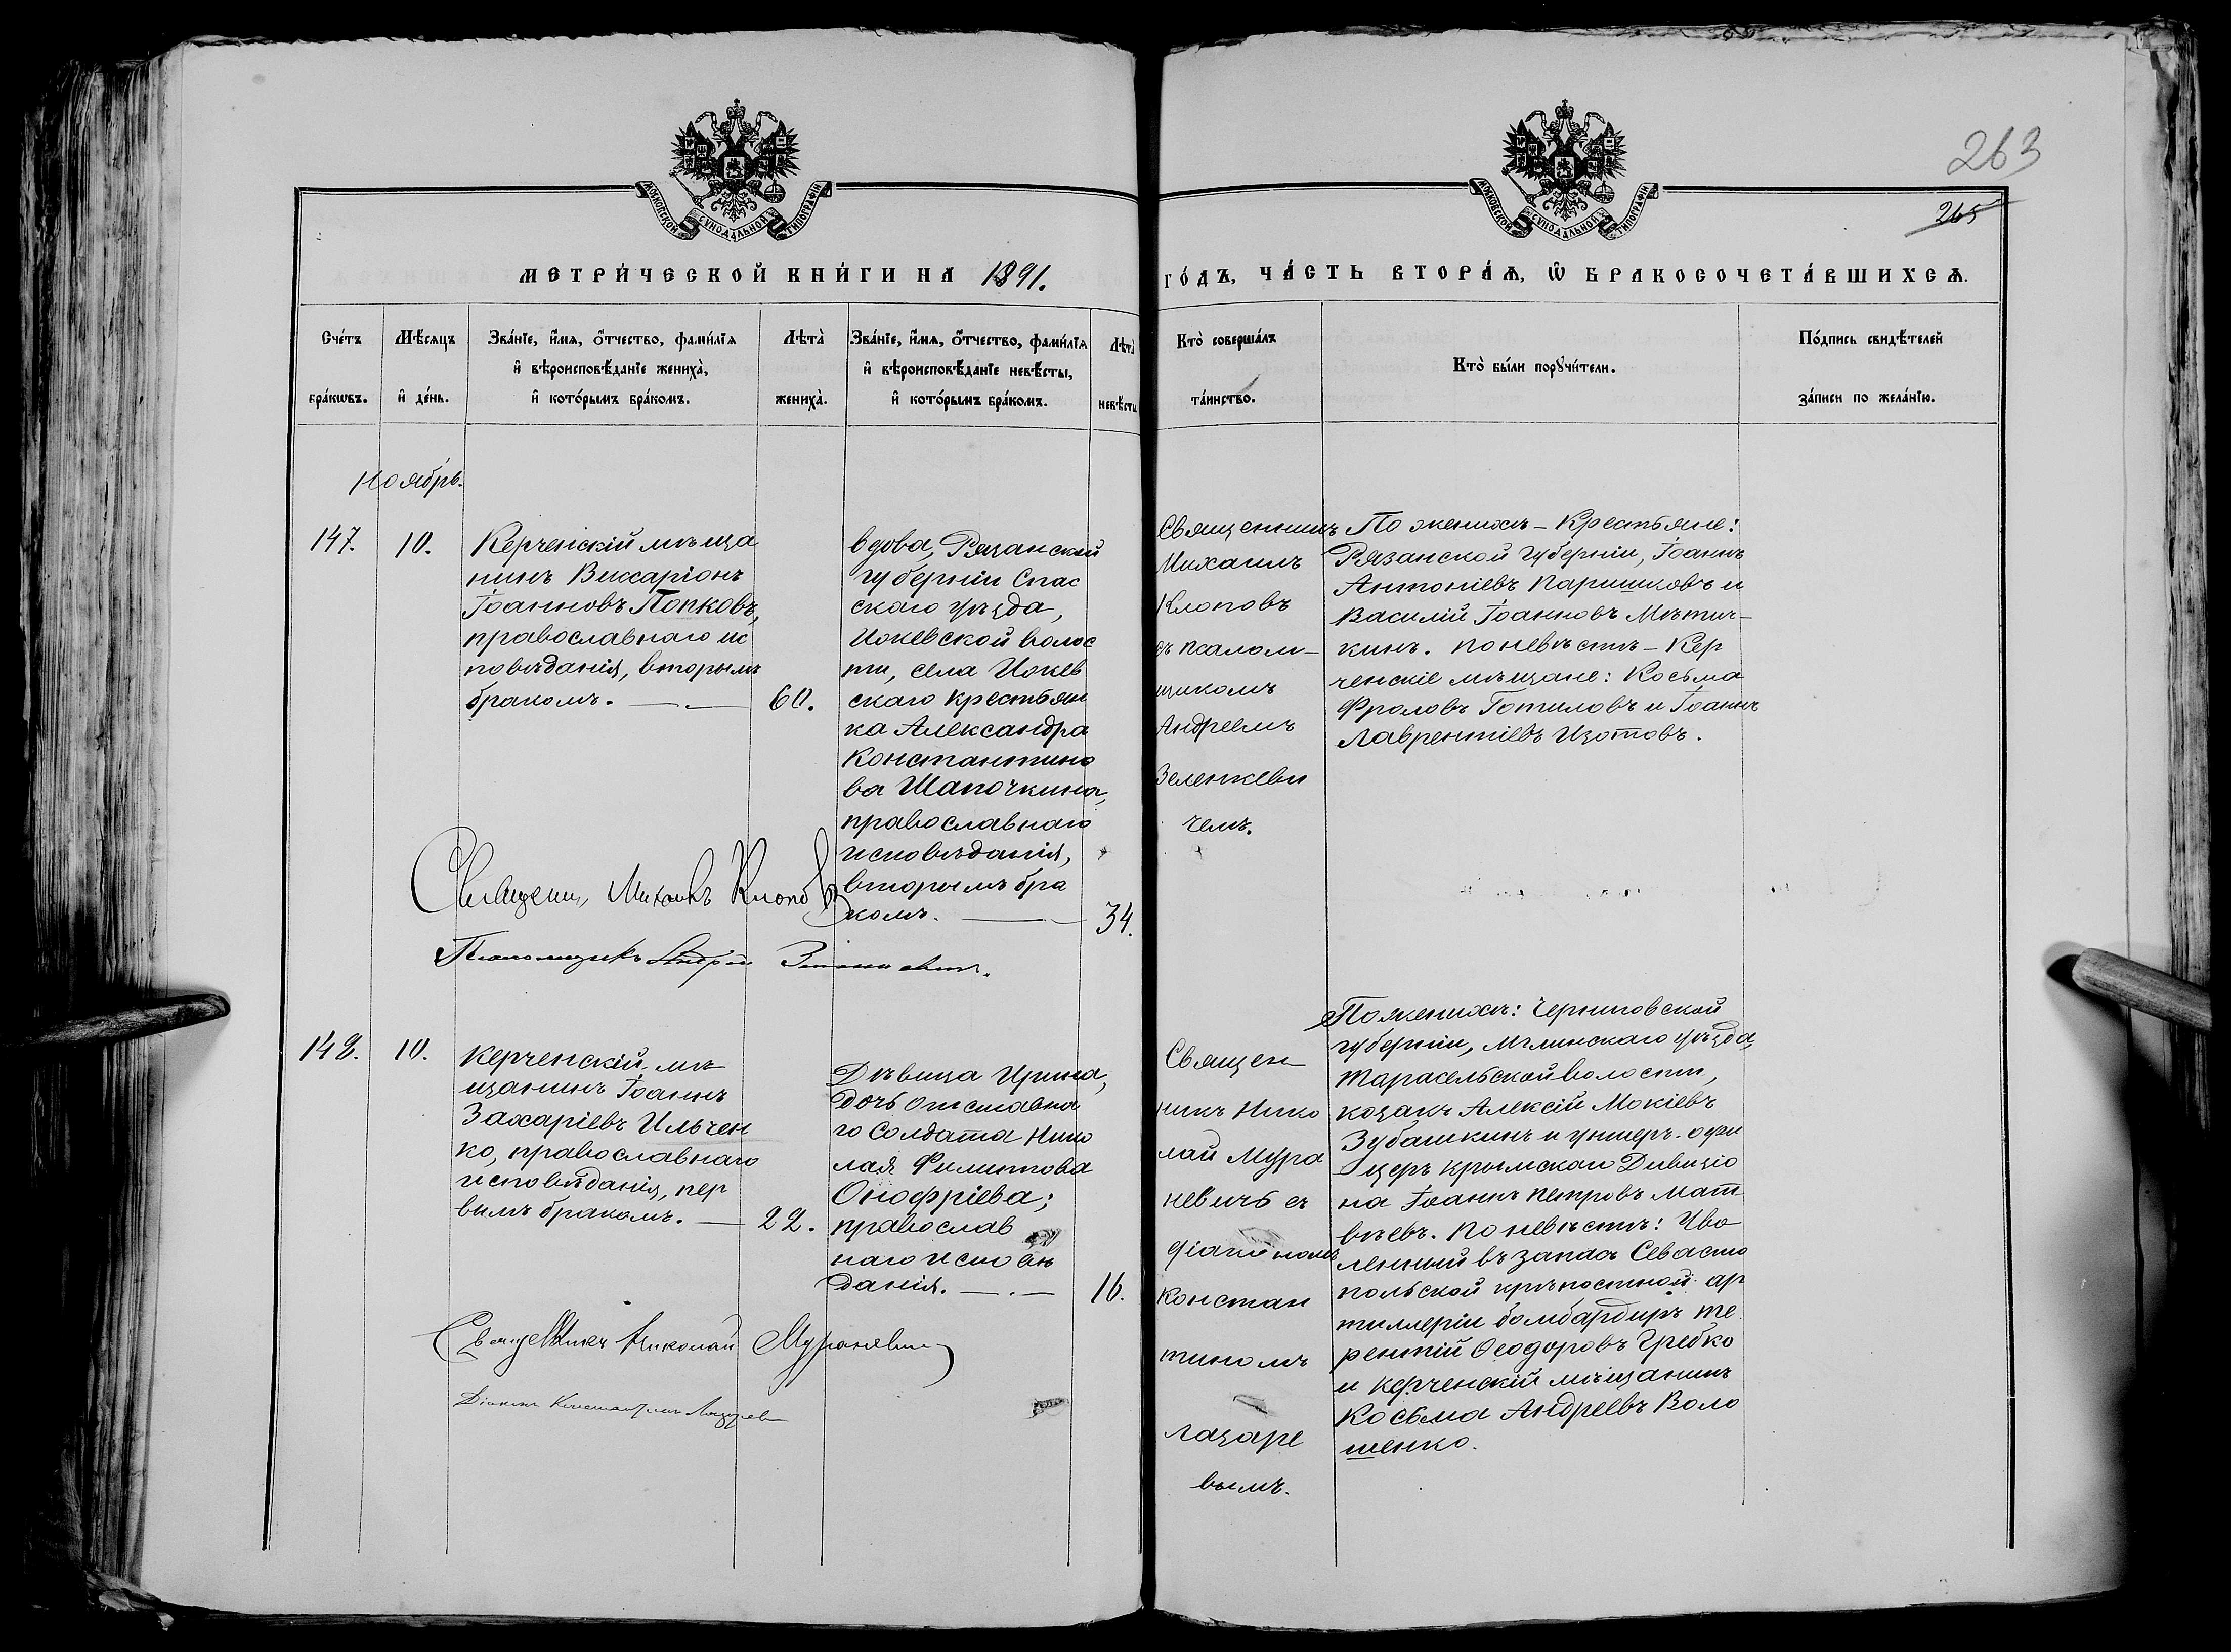 263
265
МОСКОВСКОЙ СѴНОДАЛЬНОЙ ТИПОГРАФІИ
МОСКОВСКОЙ СѴНОДАЛЬНОЙ ТИПОГРАФІИ
МЕТРИ́ЧЕСКОЙ КНИ́ГИ НА 1891. ГО́ДЪ, ЧА́СТЬ ВТОРА́Ѧ, Ѿ БРАКОСОЧЕТА́ВШИХСѦ.
Сче́тъ
бра́кѡвъ.
Мѣ́сяцъ
и҆ де́нь.
Зва́нїе, и҆́мѧ, о҆́тчество, фами́лїѧ
и҆ вѣроисповѣ́данїе жениха̀,
и҆ кото́рымъ бра́комъ.
Лѣта̀
жениха̀.
Зва́нїе, и҆́мѧ, о҆́тчество, фами́лїѧ
и҆ вѣроисповѣ́данїе невѣ́сты,
и҆ кото́рымъ бра́комъ.
Лѣта̀
невѣ́сты
Кто̀ соверша́лъ
та́инство.
Кто̀ бы́ли порꙋчи́тели.
По́дпись свидѣ́телей
за́писи по жела́нїю.
Ноябрь.
147.
10.
Керченскій мѣща
нинъ Виссаріонъ
Іоанновъ Попковъ,
православнаго ис
повѣданія, вторымъ
бракомъ. —
60.
вдова, Рязанской
губерніи Спас
скаго уѣзда,
Ижевской волос
ти, села Ижев
скаго крестьян
ка Александра
Константино
ва Шапочкина,
православнаго
исповѣданія,
вторымъ бра
комъ. —
34.
Священникъ
Михаилъ
Клоповъ
съ псалом-
щикомъ
Андреемъ
Зеленкеви
чемъ.
По женихѣ - Крестьяне:
Рязанской губерніи, Іоаннъ
Антоніевъ Паршиковъ и
Василій Іоанновъ Мѣтич-
кинъ. По невѣстѣ - Кер
ченскіе мѣщане: Косьма
Фроловъ Готиловъ и Іоаннъ
Лаврентіевъ Изотовъ.
Священн. Михаилъ Клоповъ
Псаломщикъ Андрей
148.
10.
Керченскій мѣ
щанинъ Іоаннъ
Захаріевъ Ильчен
ко, православнаго
исповѣданія, пер
вымъ бракомъ. —
22.
Дѣвица Ирина,
дочь отставна
го солдата Нико
лая Филиппова
Онофріева;
православ
наго исповѣ
данія. —
16.
Священ
никъ Нико
лай Мура
невичь съ
діакономъ
Констан
тиномъ
Лазаре
вымъ.
По женихѣ: Черниговской
губерніи, Мглинскаго уѣзда,
волости,
козакъ Алексій Мокіевъ
Зубашкинъ и унтеръ-офи
церъ Крымскаго Дивизіо
на Іоаннъ Петровъ Мат
вѣевъ. По невѣстѣ: Уво
ленный въ запасъ Севасто
польской крѣпостной ар
тиллеріи бомбардиръ Те
рентій Ѳеодоровъ Гребко
и Керченскій мѣщанинъ
Косьма Андреевъ Воло
шенко.
Священникъ Николай Мураневичъ
Діаконъ Константинъ Лазаревъ